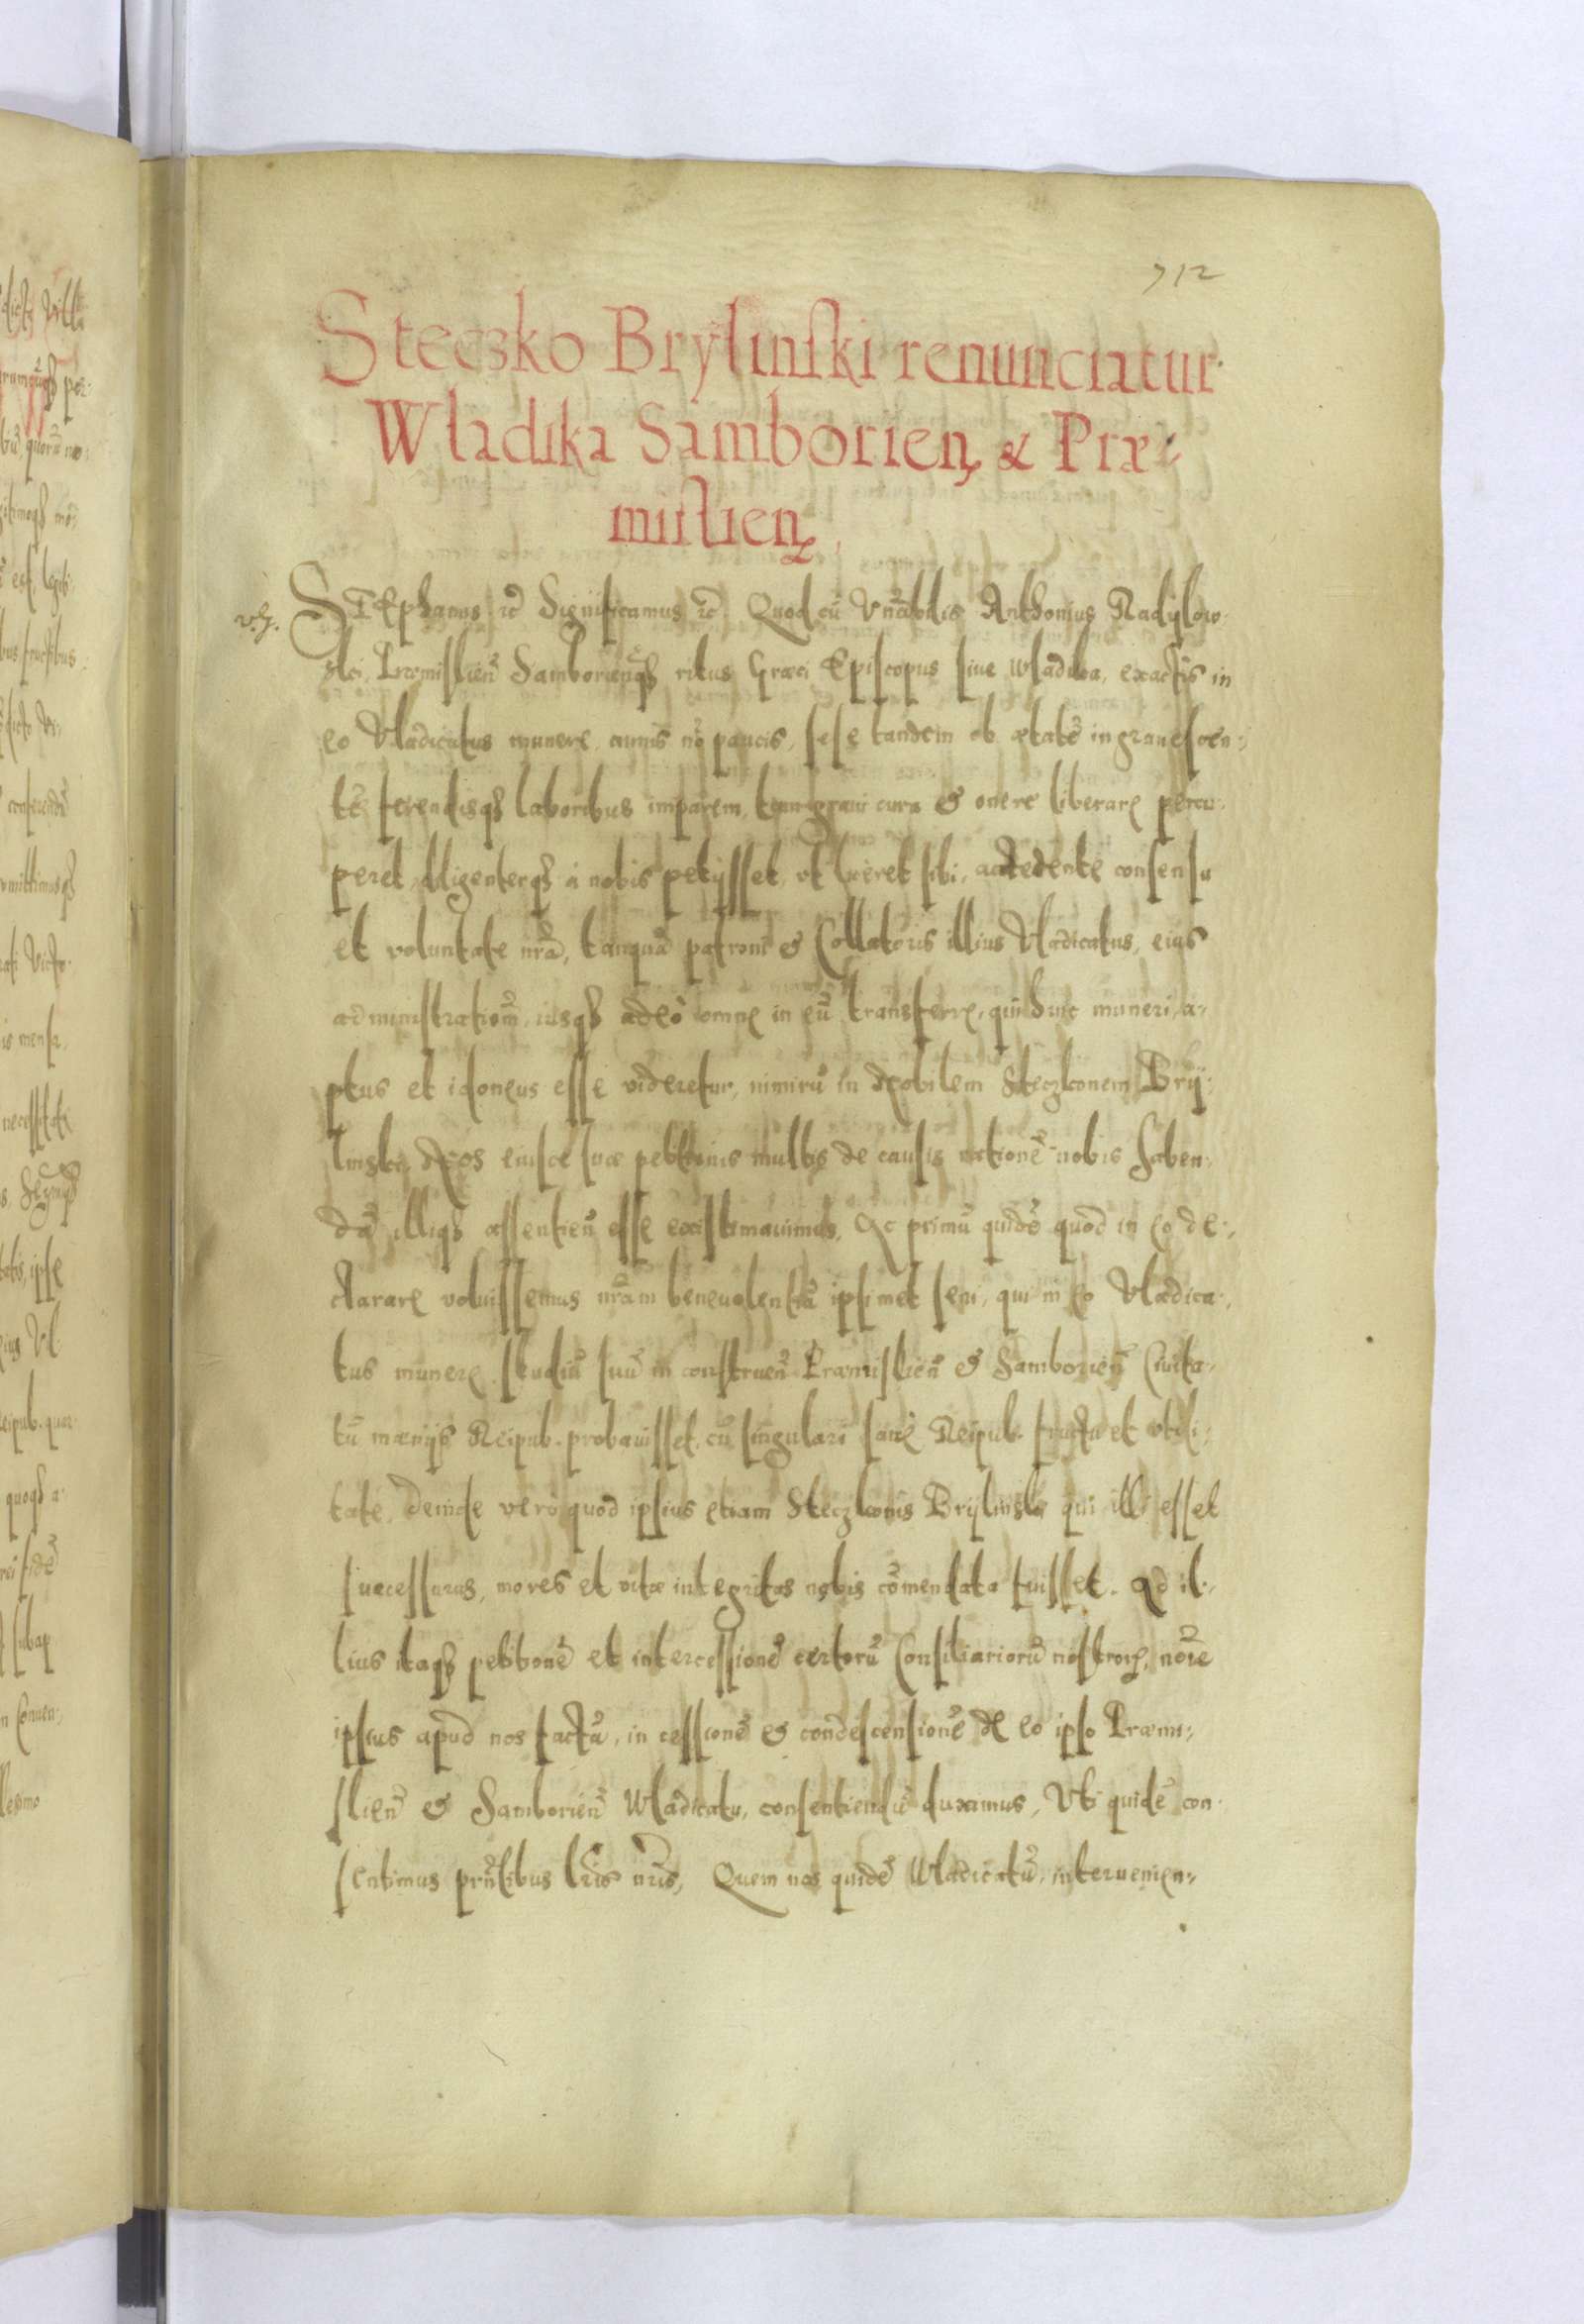 712
Steczko Brylinski renunciatur
Wladika Samborien & Præ-
mislien
Stephanus etc Significamus etc. Quod cū Vnābilis Anthonius Radÿlow-
ski, Præmislien̄ Samborienq₃ ritus Græci Episcopus siue Wladika, exactis in
eo Vladicatus munere annis nō paucis, sese tandem ob ætatē ingrauescen-
tē ferendisq₃ laboribus imparem, tam graui cura & onere liberare percu-
peret, diligenterq₃ a nobis petÿsset, vt liceret sibi, accedente consensu
et voluntate nrā, tanquā patroni & Collatoris illius Vladicatus, eius
administrationē, iusq₃ adeò omne in eū transferre, qui huic muneri a-
ptus et idoneus esse videretur, nimirū in Nobilem Steczkonem Brÿ-
linski, Nos eiusce suæ petitionis multis de causis rationē nobis haben-
dā illiq₃ assentien̄ esse existimauimus, Ac primū quidē quod in eo de-
clarare voluissemus nrām beneuolentiā ipsimet seni, qui in eo Vladica-
tus munere studiū suū in construen̄ Præmislien̄ & Samborien̄ Ciuita-
tū mænÿs Reipub. probauisset, cū singulari sane Reipub. fructu et vtili-
tate, deinde verò quod ipsius etiam Steczkonis Brÿlinski qui illi esset
successurus, mores et vitæ integritas nobis cōmendata fuisset. Ad il-
lius itaq₃ petitionē et intercessionē certorū Consiliariorū nostroꝝ, noīe
ipsius apud nos factā, in cessionē & condescensionē de eo ipso Præmi-
slien̄ & Samborien̄ Wladicatu, consentiendū duximus, Vti quidē con-
sentimus prn̄tibus lrīs nrīs, Quem nos quidē Wladicatū, interuenien-